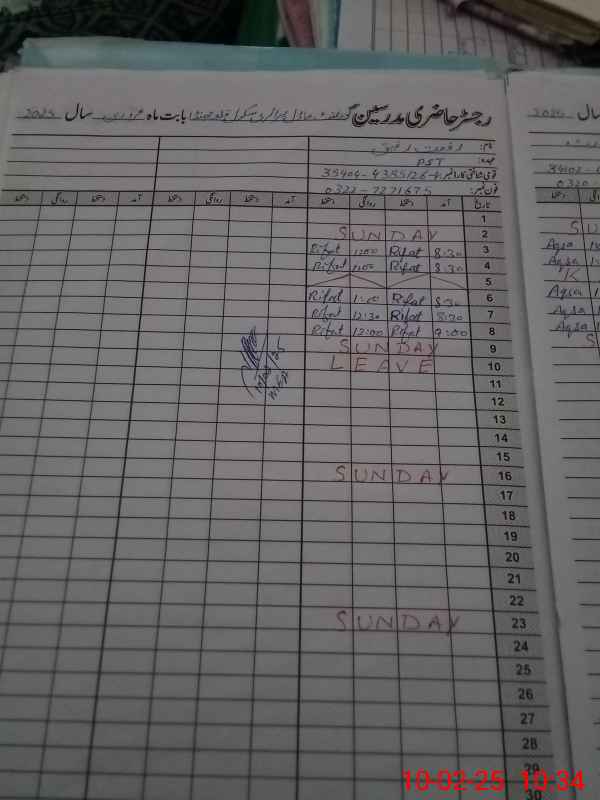 رجسٹر حاضری مدرسین گورنمنٹ ماڈل پرائمری سکول بابت ماہ فروری سال 2025
نام: رفعت رفیق
عہدہ: PST
قومی شناختی کارڈ نمبر: 35404-4385126-4
فون نمبر: 0322-7271675
تاریخ آمد دستخط روانگی دستخط آمد دستخط روانگی دستخط آمد دستخط روانگی دستخط
1
SUNDAY 2
Rifat Rifat 8:30 3
Rifat Rifat 8:30 4
5
Rifat Rifat 8:30 6
Rifat 12:30 Rifat 8:30 7
Rifat 12:00 Rifat 9:00 8
SUNDAY 9
LEAVE 10
11
12
13
14
15
SUNDAY 16
17
18
19
20
21
22
SUNDAY 23
24
25
26
27
28
29
30
سال 2025
34102-
0320
دستخط
SU
Aqsa
Aqsa
K
Aqsa
Aqsa
Aqsa
S
10-02-25 10:34